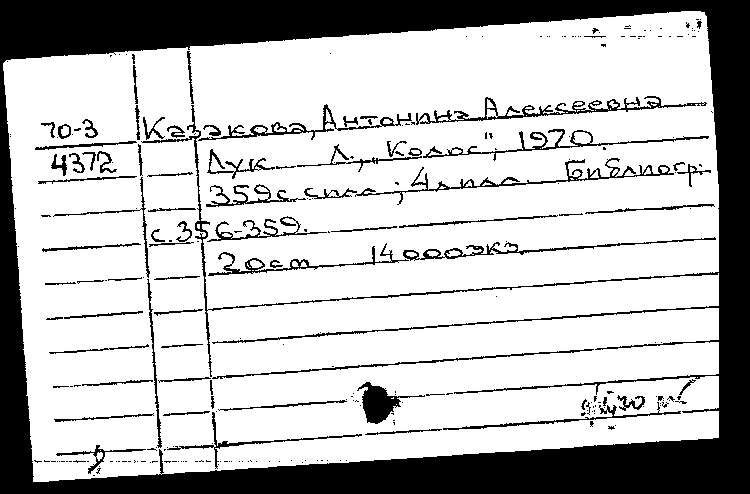 70-3 Казакова, Антонина Алексеевна
4372 Лук Л., „Колос", 1970.
359с с илл ; 4л илл. Библиогр:
с. 356-359.
20 см 14000 экз